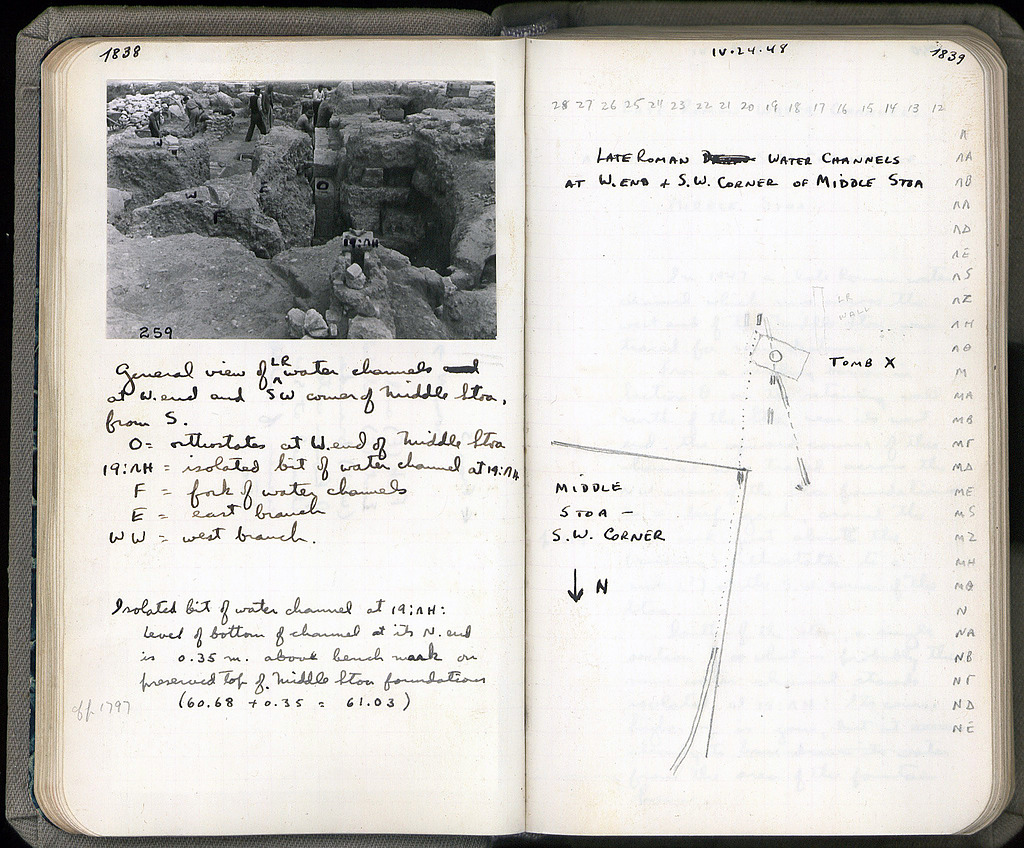 1838
W
F
O
19:ΛH
259
General view of LR water channels
at W. end and SW corner of Middle Stoa,
from S.
O = orthostates at W. end of Middle Stoa
19:ΛH = isolated bit of water channel at 19:ΛH
F = fork of water channels
E = east branch
W = west branch.
Isolated bit of water channel at 19:ΛH:
Level of bottom of channel at its N. end
is 0.35 m. above bench mark on
preserved top of Middle Stoa foundations
(60.68 + 0.35 = 61.03)
1797
IV.24.48
1839
28 27 26 25 24 23 22 21 20 19 18 17 16 15 14 13 12
LATE ROMAN WATER CHANNELS
AT W. END + S.W. CORNER OF MIDDLE STOA
Λ
ΛA
ΛB
ΛΓ
ΛΔ
ΛE
ΛS
ΛZ
ΛH
ΛΘ
M
MA
MB
MΓ
MΔ
ME
MS
MZ
MH
MΘ
N
NA
NB
NΓ
NΔ
NE
LR
WALL
TOMB X
MIDDLE
STOA –
S.W. CORNER
N